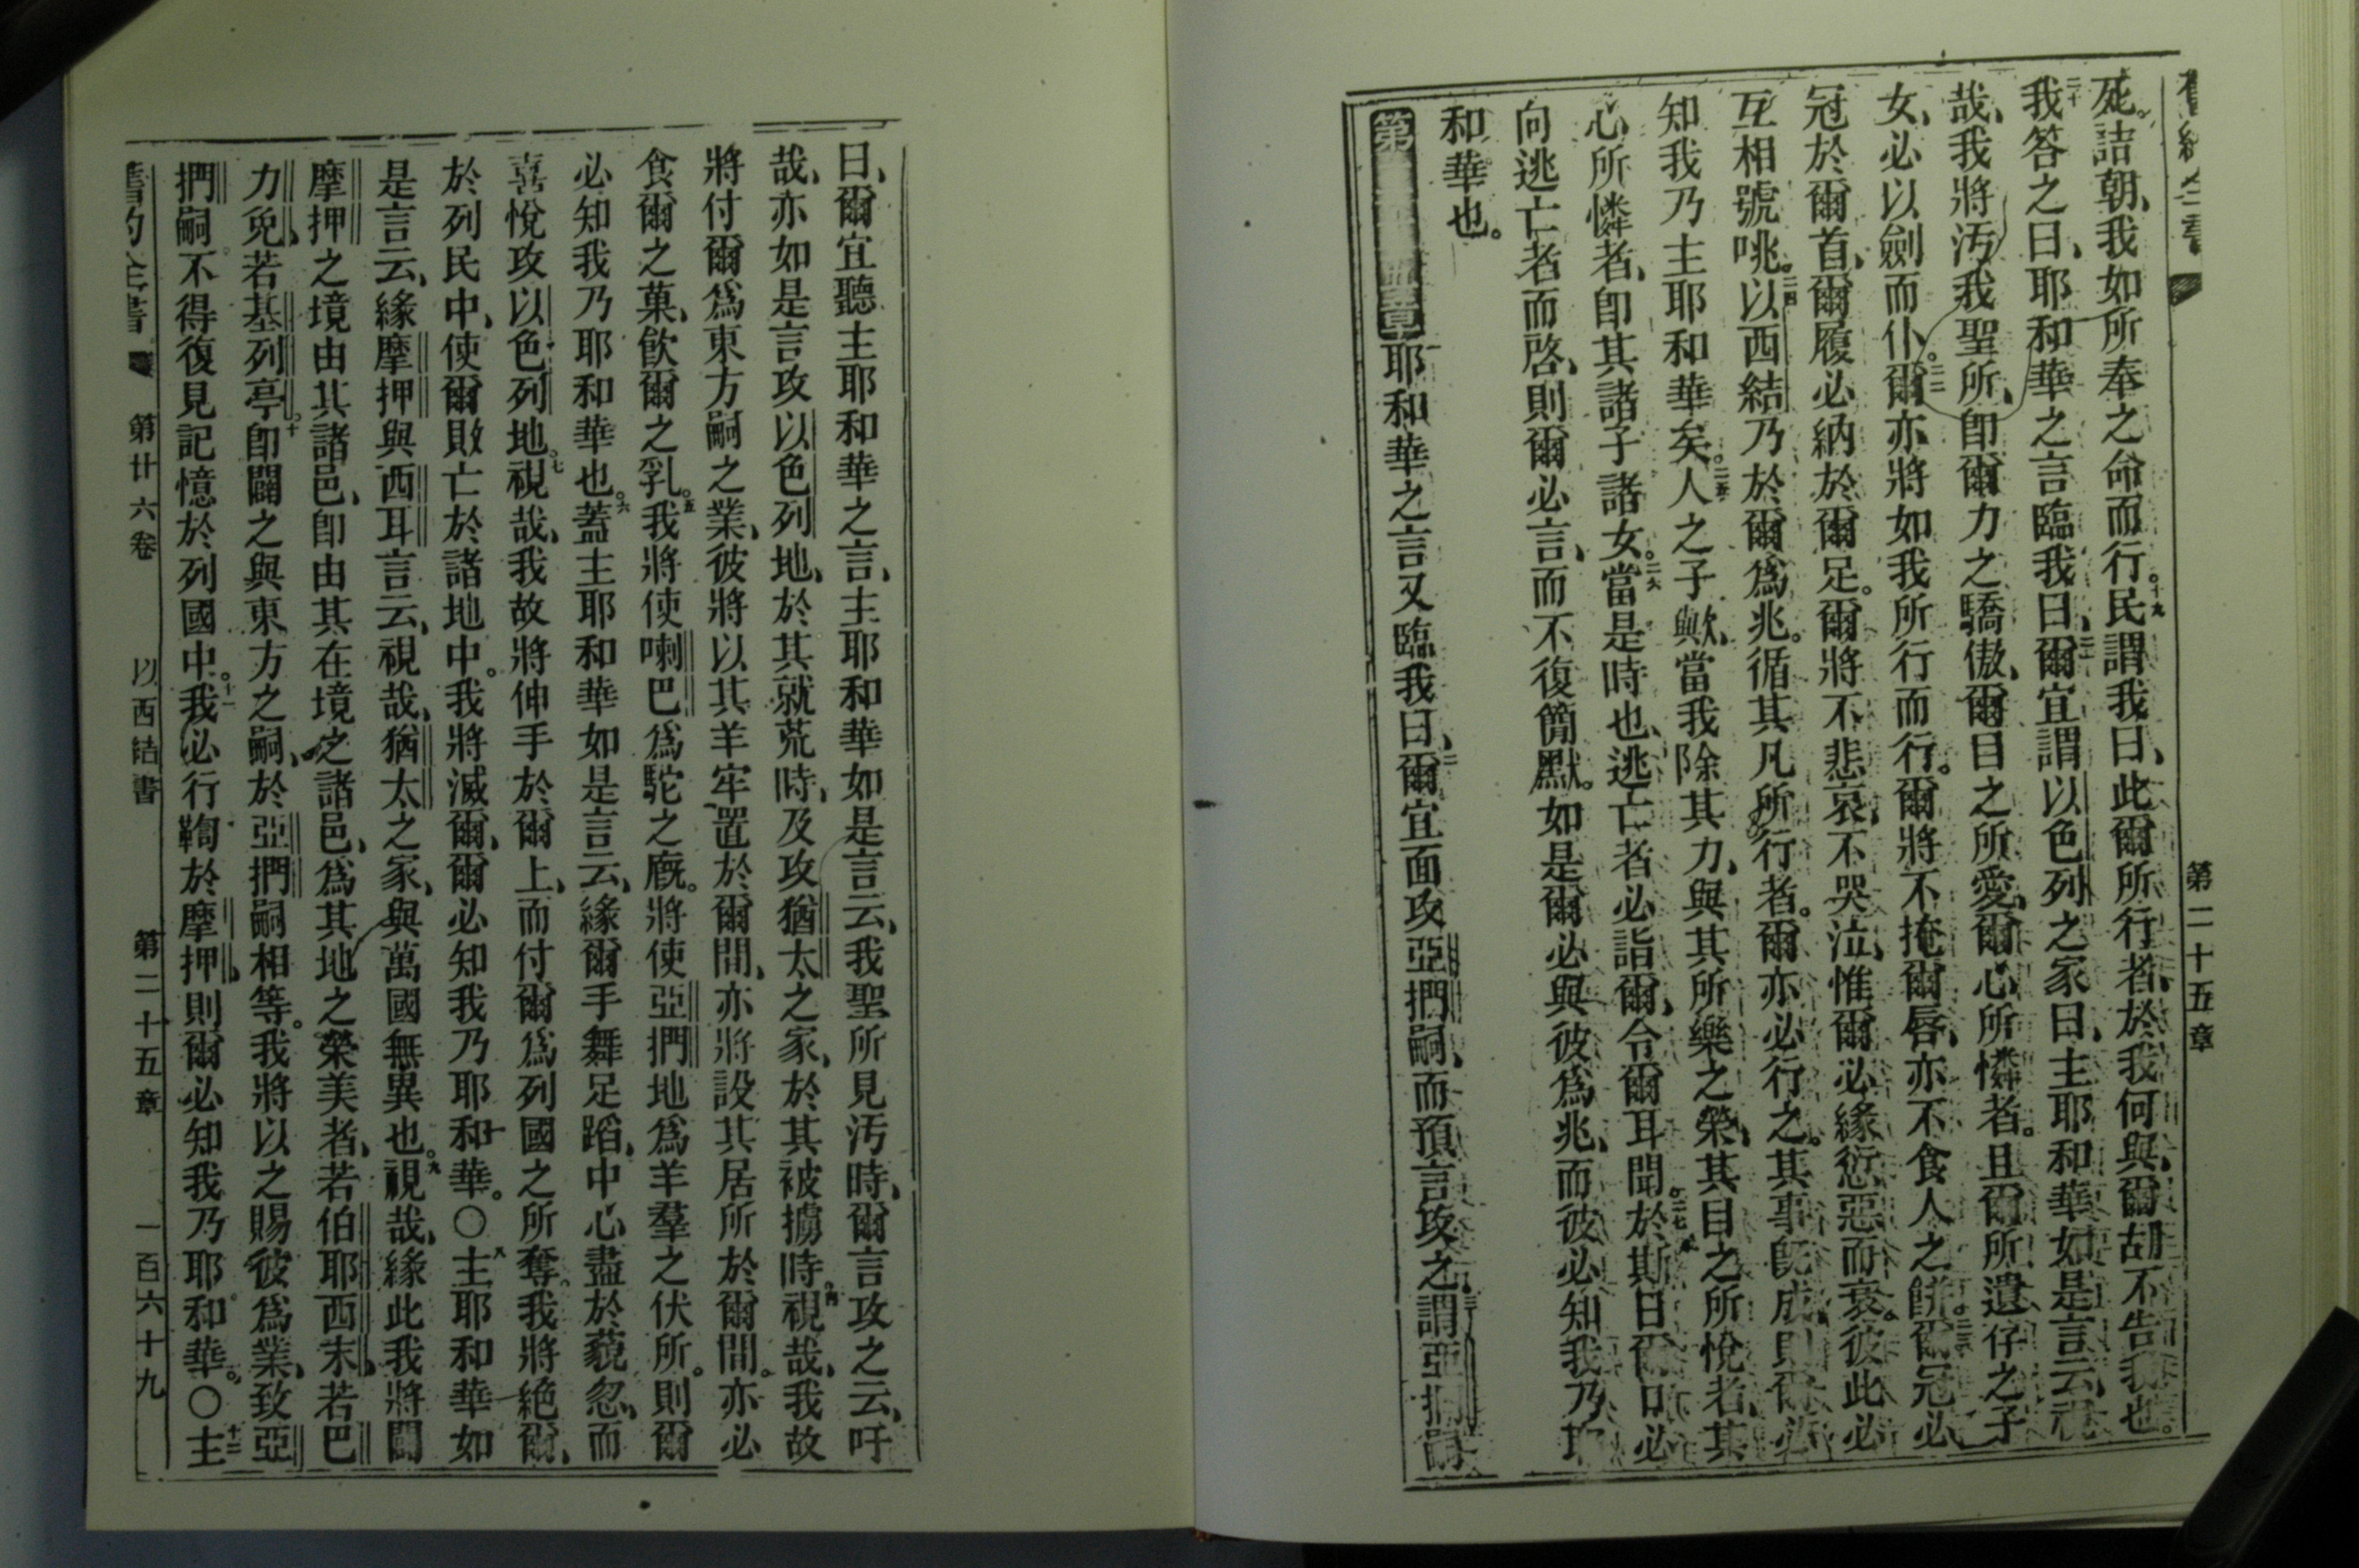 第二十五章
死詰朝我如所奉之命而行。十九民謂我曰、此爾所行者、於我何與、爾胡不告我也。
二十我答之曰、耶和華之言臨我曰、二一爾宜謂以色列之家曰、主耶和華如是言云、視
哉、我將污我聖所、卽爾力之驕傲、爾目之所愛、爾心所憐者。且爾所遺存之子
女、必以劍而仆。二二爾亦將如我所行而行。爾將不掩爾唇、亦不食人之餅。二三爾冠必
冠於爾首、爾履必納於爾足。爾將不悲哀、不哭泣、惟爾必緣愆惡而衰。彼此必
互相號咷。二四以西結乃於爾爲兆。循其凡所行者。爾亦必行之。其事旣成、則爾必
知我乃主耶和華矣。二五人之子歟、當我除其力、與其所樂之榮、其目之所悅者、其
心所憐者、卽其諸子諸女。二六當是時也、逃亡者必詣爾、令爾耳聞。二七於斯日爾口必
向逃亡者而啓、則爾必言、而不復簡默。如是爾必與彼爲兆、而彼必知我乃耶
和華也。
第 章 耶和華之言又臨我曰、二爾宜面攻亞捫嗣、而預言攻之、三謂亞捫嗣
曰、爾宜聽主耶和華之言、主耶和華如是言云、我聖所見污時、爾言攻之云、吁
哉、亦如是言攻以色列地、於其就荒時、及攻猶太之家、於其被擄時。四視哉、我故
將付爾爲東方嗣之業、彼將以其羊牢置於爾間、亦將設其居所於爾間。亦必
食爾之菓、飲爾之乳。五我將使喇巴爲駝之廐。將使亞捫地爲羊羣之伏所。則爾
必知我乃耶和華也。六蓋主耶和華如是言云、緣爾手舞足蹈、中心盡於藐忽、而
喜悅攻以色列地。七視哉、我故將伸手於爾上、而付爾爲列國之所奪。我將絕爾、
於列民中、使爾敗亡於諸地中。我將滅爾、爾必知我乃耶和華。○八主耶和華如
是言云、緣摩押與西耳言云、視哉、猶太之家、與萬國無異也。九視哉、緣此我將闢
摩押之境由其諸邑、卽由其在境之諸邑、爲其地之榮美者、若伯耶西末、若巴
力免、若基列亭。十卽闢之與東方之嗣、於亞捫嗣相等。我將以之賜彼爲業、致亞
捫嗣不得復見記憶於列國中。十一我必行鞫於摩押、則爾必知我乃耶和華。○十二主
舊約全書 第廿六卷 以西結書 第二十五章 一百六十九